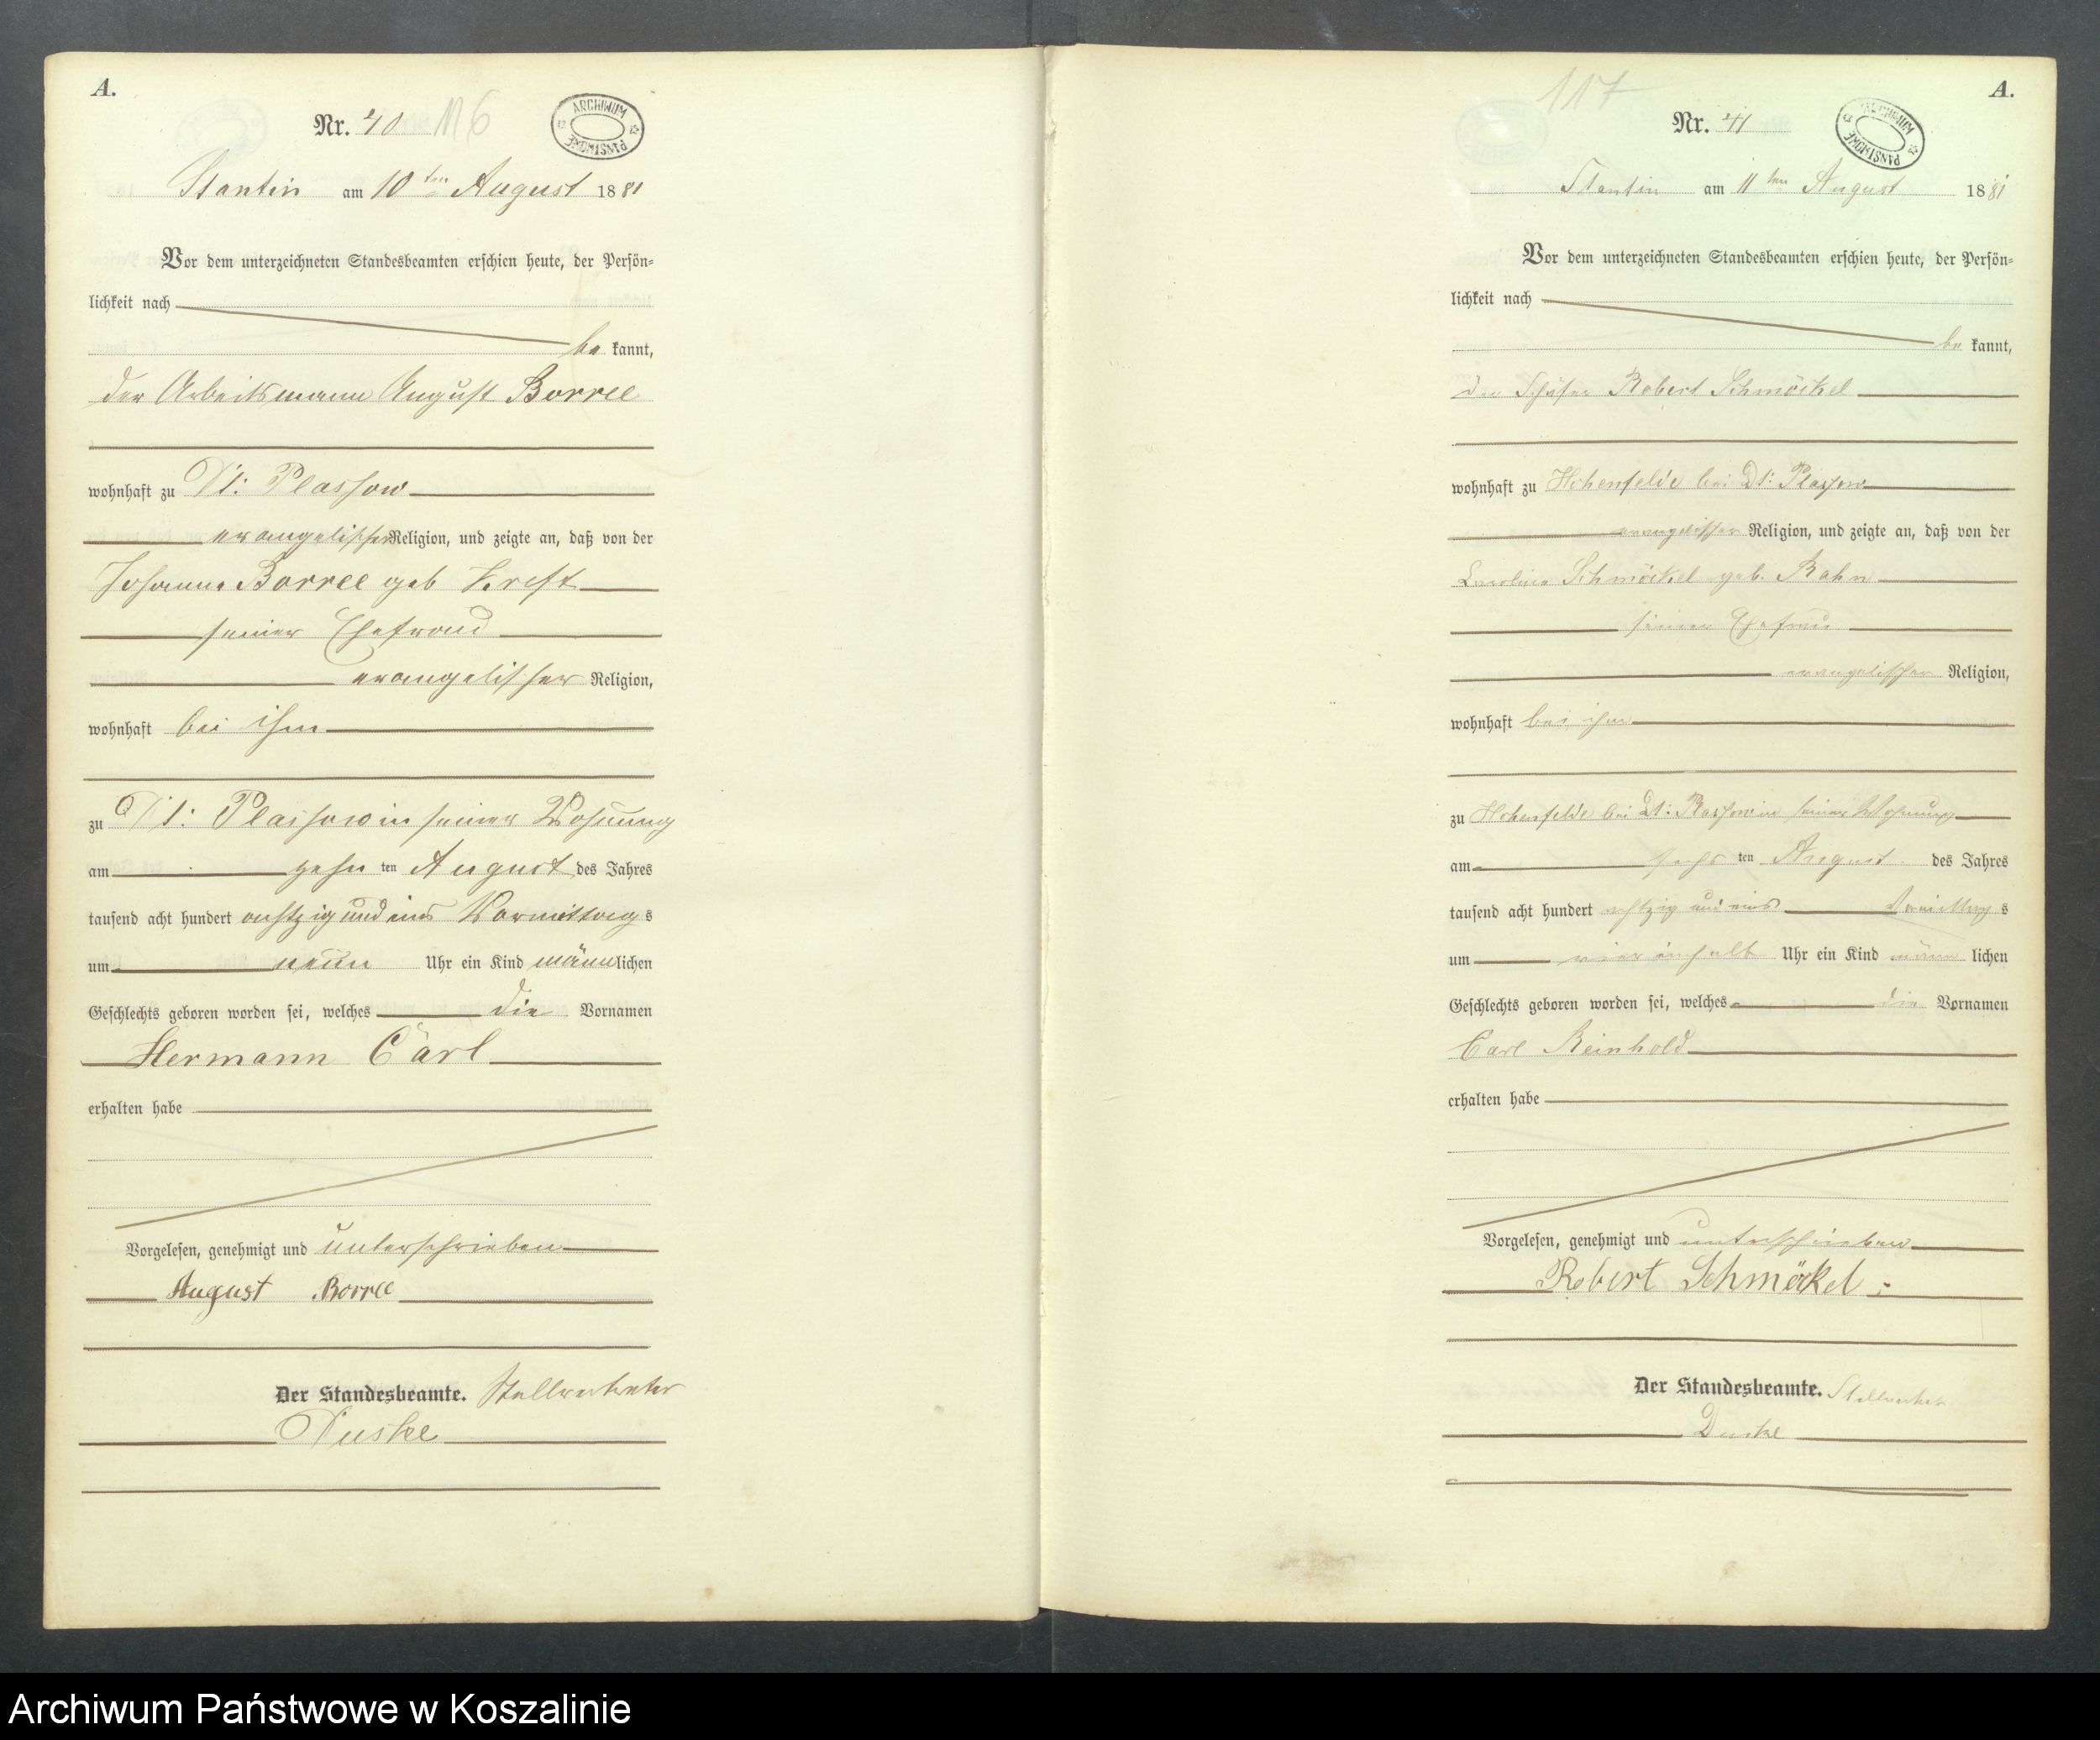 A.
Nr. 40 116
ARCHIWUM PAŃSTWOWE
Stantin am 10ten August 1881
Vor dem unterzeichneten Standesbeamten erschien heute, der Persön=
lichkeit nach
be kannt,
der Arbeitsmann August Borree
wohnhaft zu Dt: Plassow
evangelischer Religion, und zeigte an, daß von der
Johanna Borree geb
seiner Ehefrau
evangelischer Religion,
wohnhaft bei ihm
zu Dt: Plassow in seiner Wohnung
am zehn ten August des Jahres
tausend acht hundert achtzig und eins Vormittag s
um neun Uhr ein Kind männlichen
Geschlechts geboren worden sei, welches die Vornamen
Hermann Carl
erhalten habe
Vorgelesen, genehmigt und unterschrieben
August Borree
Der Standesbeamte. Stellvertreter
117
A.
Nr. 41
ARCHIWUM PAŃSTWOWE
Stantin am 11ten August 1881
Vor dem unterzeichneten Standesbeamten erschien heute, der Persön=
lichkeit nach
be kannt,
der Schäfer Robert Schmöckel
wohnhaft zu Hohenfelde bei Dt: Plassow
evangelischer Religion, und zeigte an, daß von der
Caroline Schmöckel geb. Rahn
seiner Ehefrau
evangelischer Religion,
wohnhaft bei ihm
zu Hohenfelde bei Dt: Plassow in seiner Wohnung
am sechs ten August des Jahres
tausend acht hundert achtzig und eins s
um Uhr ein Kind männ lichen
Geschlechts geboren worden sei, welches die Vornamen
Carl Reinhold
erhalten habe
Vorgelesen, genehmigt und unterschrieben
Robert Schmöckel
Der Standesbeamte.
Archiwum Państwowe w Koszalinie